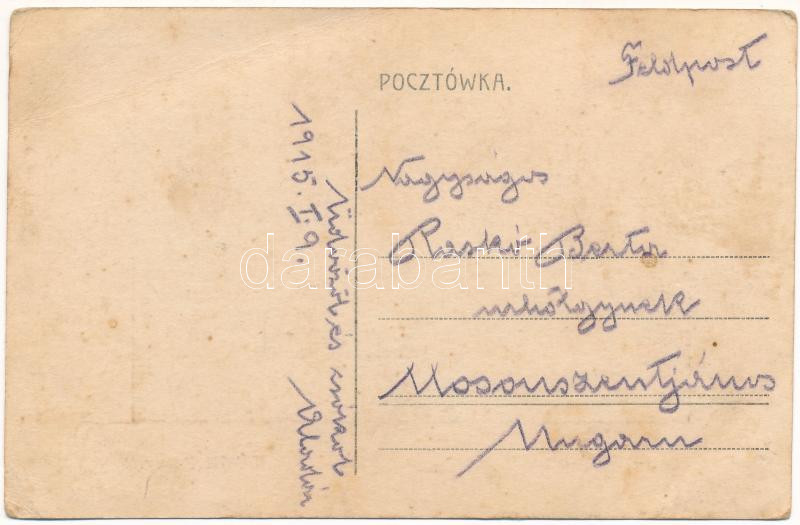 POCZTÓWKA.
Feldpost
Nagyságos
Raskó Berta
urhölgynek
Mosonszentjános
Ungarn
1915. I. 9.
Üdvözöl és csókol
darabanth